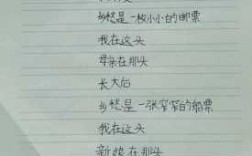 乡愁是一枚小小的邮票
我在这头
母亲在那头
长大后
乡愁是一张窄窄的邮票
我在这头
新娘在那头